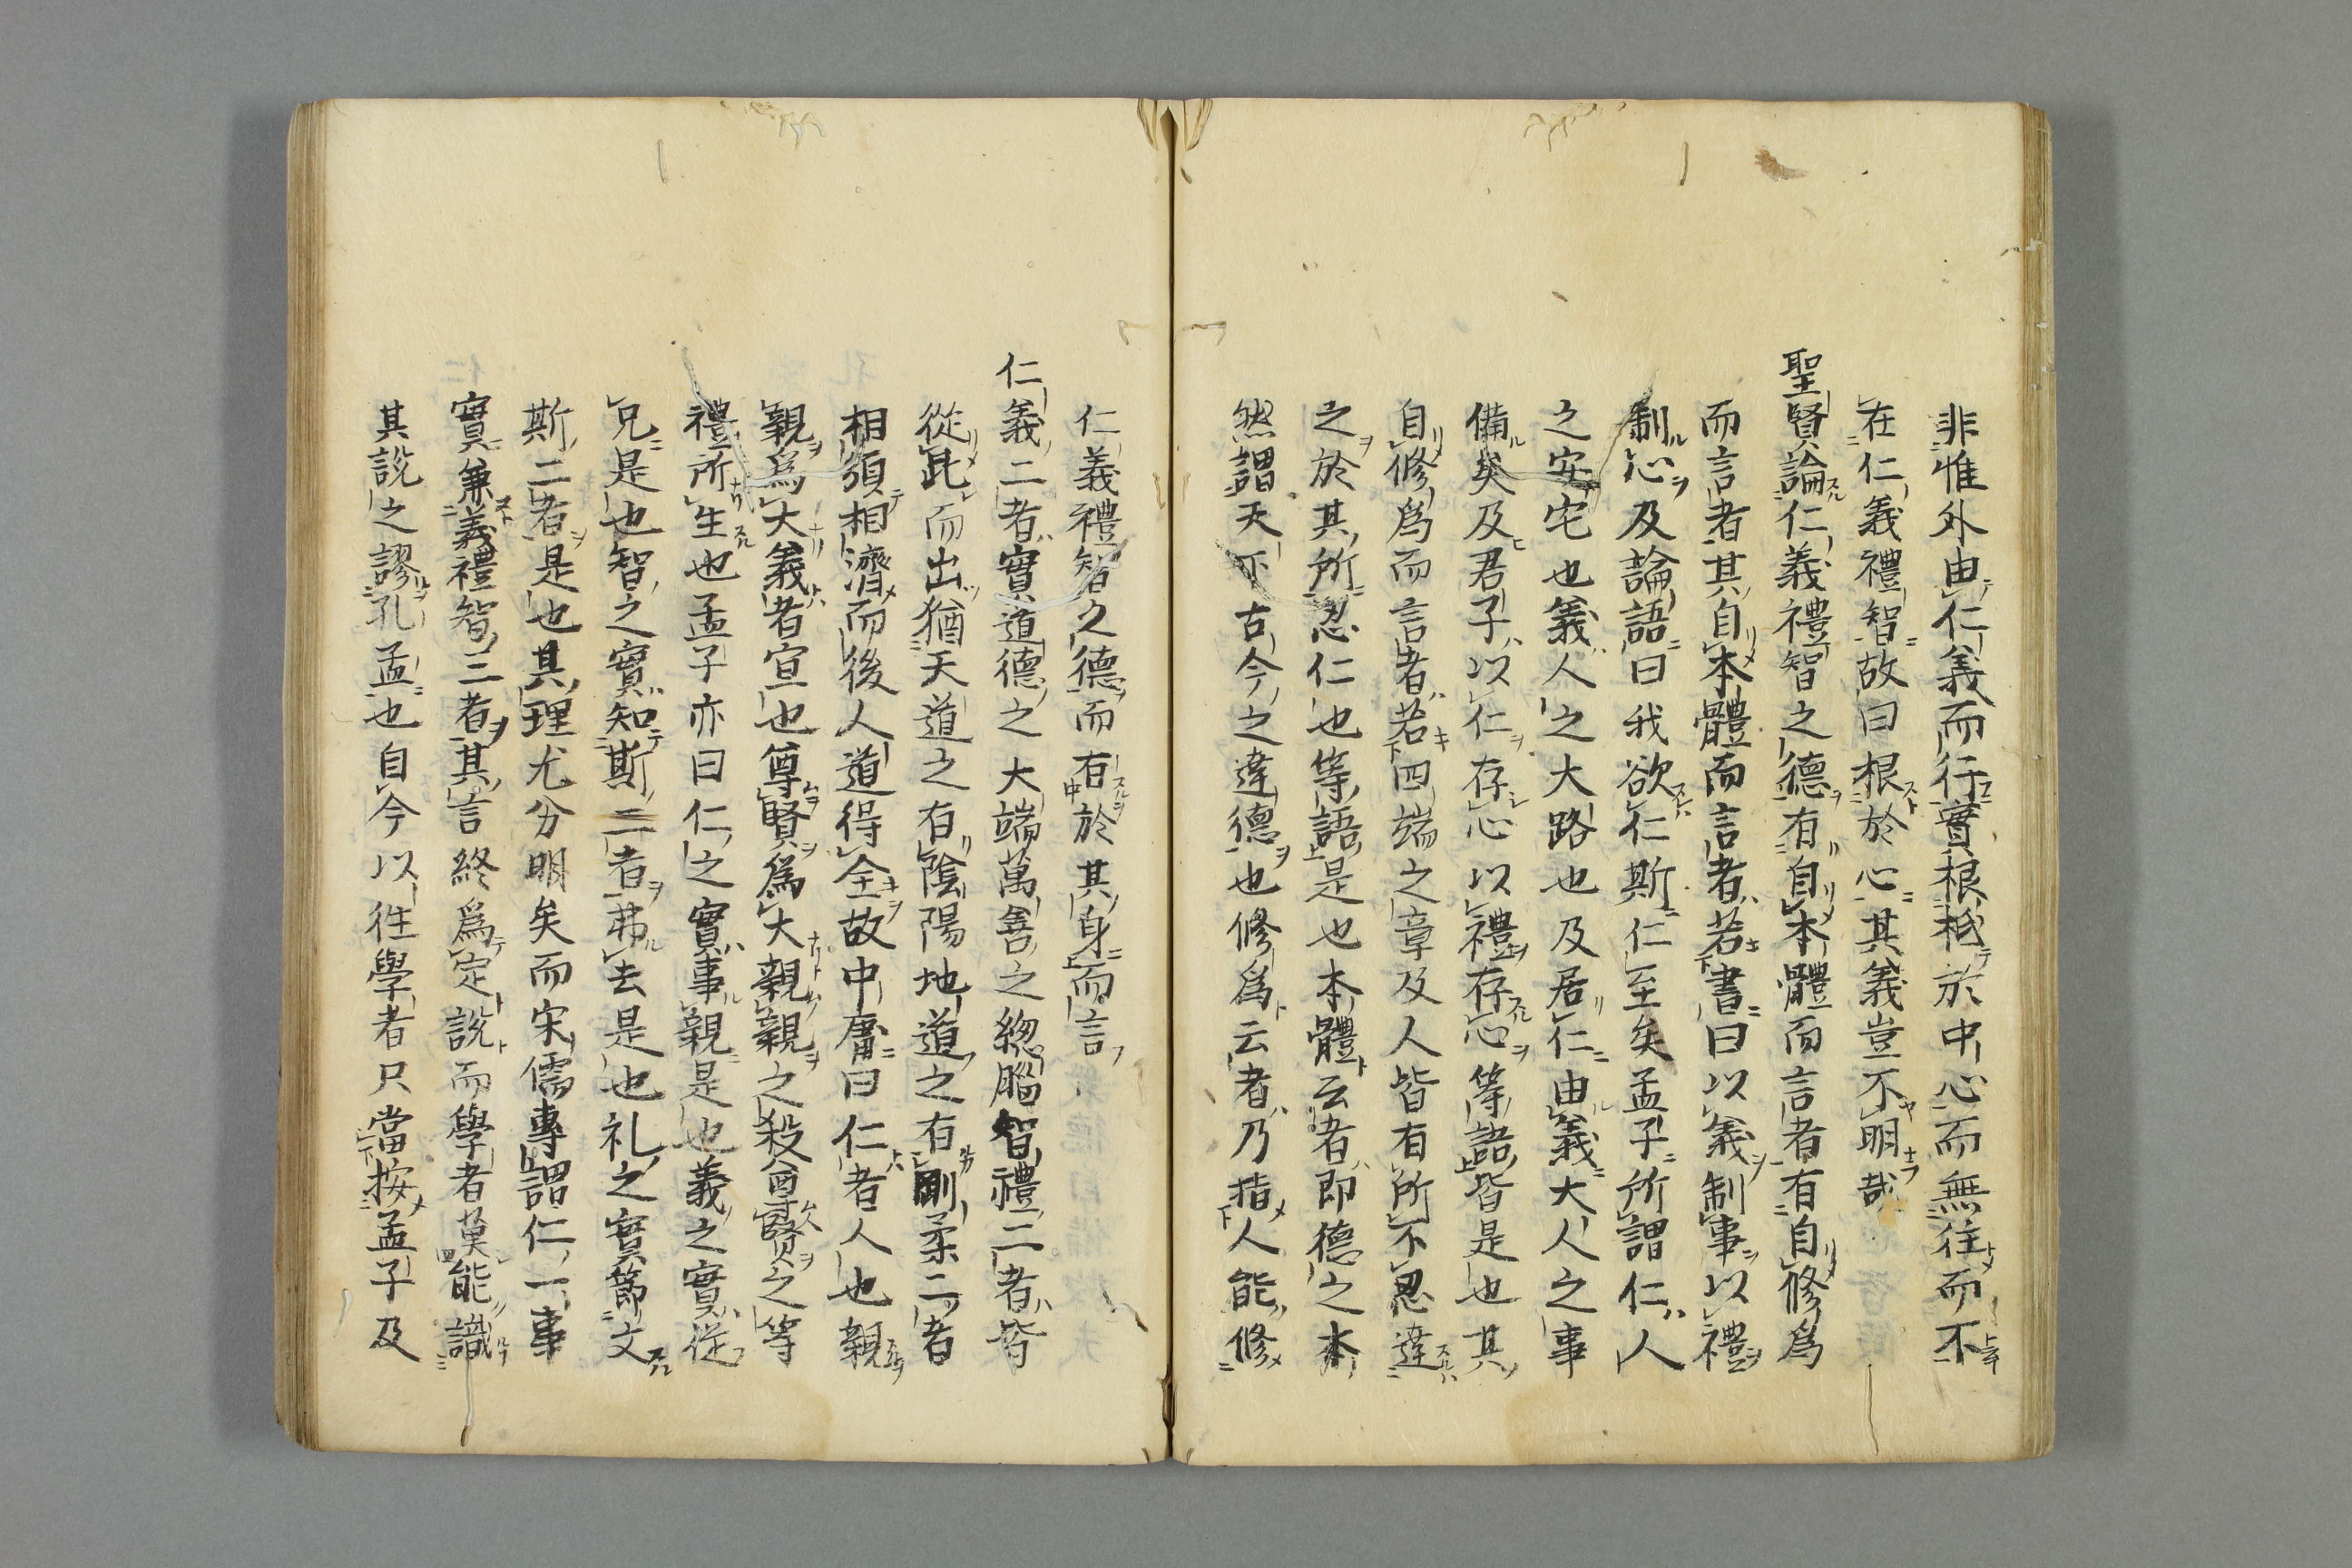 非惟外由仁義而行實根柢於中心而無往而不
在仁義禮智故曰根於心其義豈不明哉
聖賢論仁義禮智之德有自本體而言者有自修爲
而言者其自本體而言者若書曰以義制事以禮
制心及論語曰我欲仁斯仁至矣孟子所謂仁人
之安宅也義人之大路也及居仁由義大人之事
備矣及君子以仁存心以禮存心等語皆是也其
自修爲而言者若四端之章及人皆有所不忍達
之於其所忍仁也等語是也本體云者即德之本
然謂天下古今之達德也修爲云者乃指人能修
仁義禮智之德而有於其身而言
仁義二者實道德之大端萬善之總腦智禮二者皆
從此而出猶天道之有陰陽地道之有剛柔二者
相須相濟而後人道得全故中庸曰仁者人也親
親爲大義者宜也尊賢爲大親親之殺尊賢之等
禮所生也孟子亦曰仁之實事親是也義之實從
兄是也智之實知斯二者弗去是也礼之實節文
斯二者是也其理尤分明矣而宋儒專謂仁一事
實兼義禮智三者其言終爲定說而學者莫能識
其說之謬孔孟也自今以往學者只當按孟子及